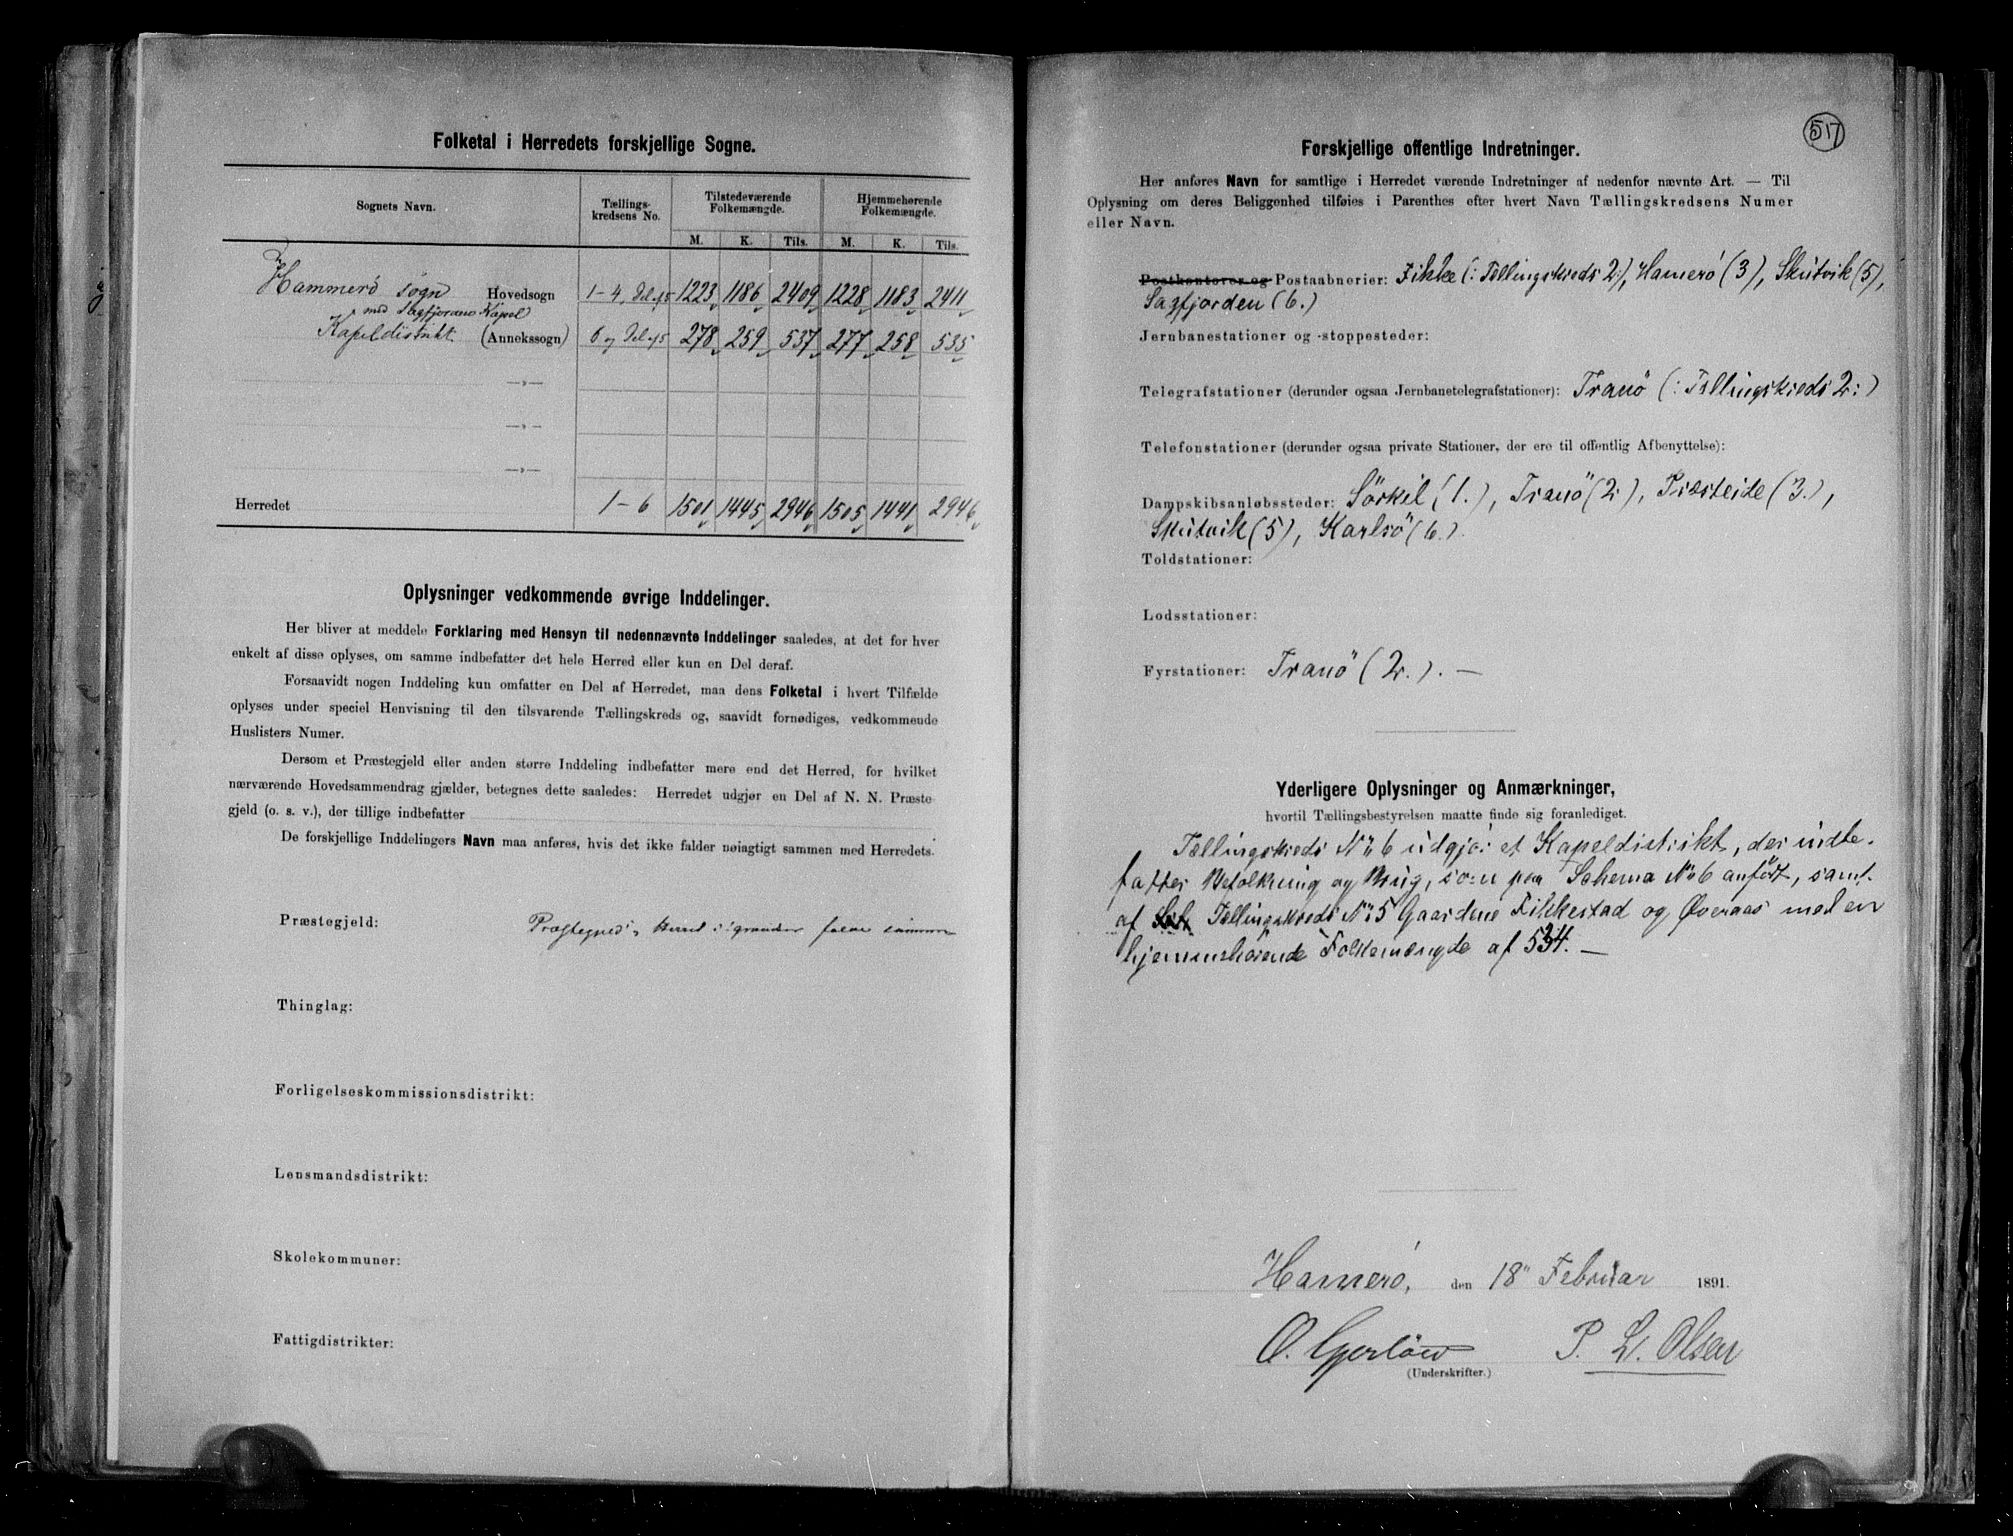 Folketal i Herredets forskjellige Sogne.
Sognets Navn. Tællings- kredsens No. Tilstedeværende Folkemængde. Hjemmehørende Folkemængde.
M. K. Tils. M. K. Tils.
Hammerö sogn Hovedsogn 1-4, Del af 5 1223 1186 2409 1228 1183 2411
med Sagfjordens Kapel
Kapeldistrikt. (Annekssogn) 6 og Del af 5 278 259 537 277 258 535
—„—
—„—
—„—
Herredet 1-6 1501 1445 2946 1505 1441 2946
Oplysninger vedkommende øvrige Inddelinger.
Her bliver at meddele Forklaring med Hensyn til nedennævnte Inddelinger saaledes, at det for hver
enkelt af disse oplyses, om samme indbefatter det hele Herred eller kun en Del deraf.
Forsaavidt nogen Inddeling kun omfatter en Del af Herredet, maa dens Folketal i hvert Tilfælde
oplyses under speciel Henvisning til den tilsvarende Tællingskreds og, saavidt fornødiges, vedkommende
Huslisters Numer.
Dersom et Præstegjeld eller anden større Inddeling indbefatter mere end det Herred, for hvilket
nærværende Hovedsammendrag gjælder, betegnes dette saaledes: Herredet udgjør en Del af N. N. Præste-
gjeld (o. s. v.), der tillige indbefatter
De forskjellige Inddelingers Navn maa anføres, hvis det ikke falder nøiagtigt sammen med Herredets.
Præstegjeld: Herred falde sammen
Thinglag:
Forligelseskommissionsdistrikt:
Lensmandsdistrikt:
Skolekommuner:
Fattigdistrikter:
517
Forskjellige offentlige Indretninger.
Her anføres Navn for samtlige i Herredet værende Indretninger af nedenfor nævnte Art. — Til
Oplysning om deres Beliggenhed tilføies i Parenthes efter hvert Navn Tællingskredsens Numer
eller Navn.
Postkontorer og Postaabnerier: Fikke (: Tællingskreds 2:), Hamerö (3), Skutvik (5),
Sagfjorden (6.)
Jernbanestationer og -stoppesteder:
Telegrafstationer (derunder ogsaa Jernbanetelegrafstationer): Tranö (: Tællingskreds 2:)
Telefonstationer (derunder ogsaa private Stationer, der ere til offentlig Afbenyttelse):
Dampskibsanløbssteder: Sörkil (1.), Tranö (2.), Presteide (3.),
Skutvik (5), Karlsö (6.).
Toldstationer:
Lodsstationer:
Fyrstationer: Tranö (2.). —
Yderligere Oplysninger og Anmærkninger,
hvortil Tællingsbestyrelsen maatte finde sig foranlediget.
Tællingskreds No 6 udgjör et Kapeldistrikt, der indbe-
fatter Befolkning og Brug, som paa Schema No 6 anfört, samt
af Tællingskreds No 5 Gaardene Fikkestad og Øveraas med en
hjemmehörende Folkemængde af 534. —
Hamerö, den 18 Februar 1891.
O. Gjerlöw P. L. Olsen
(Underskrifter.)